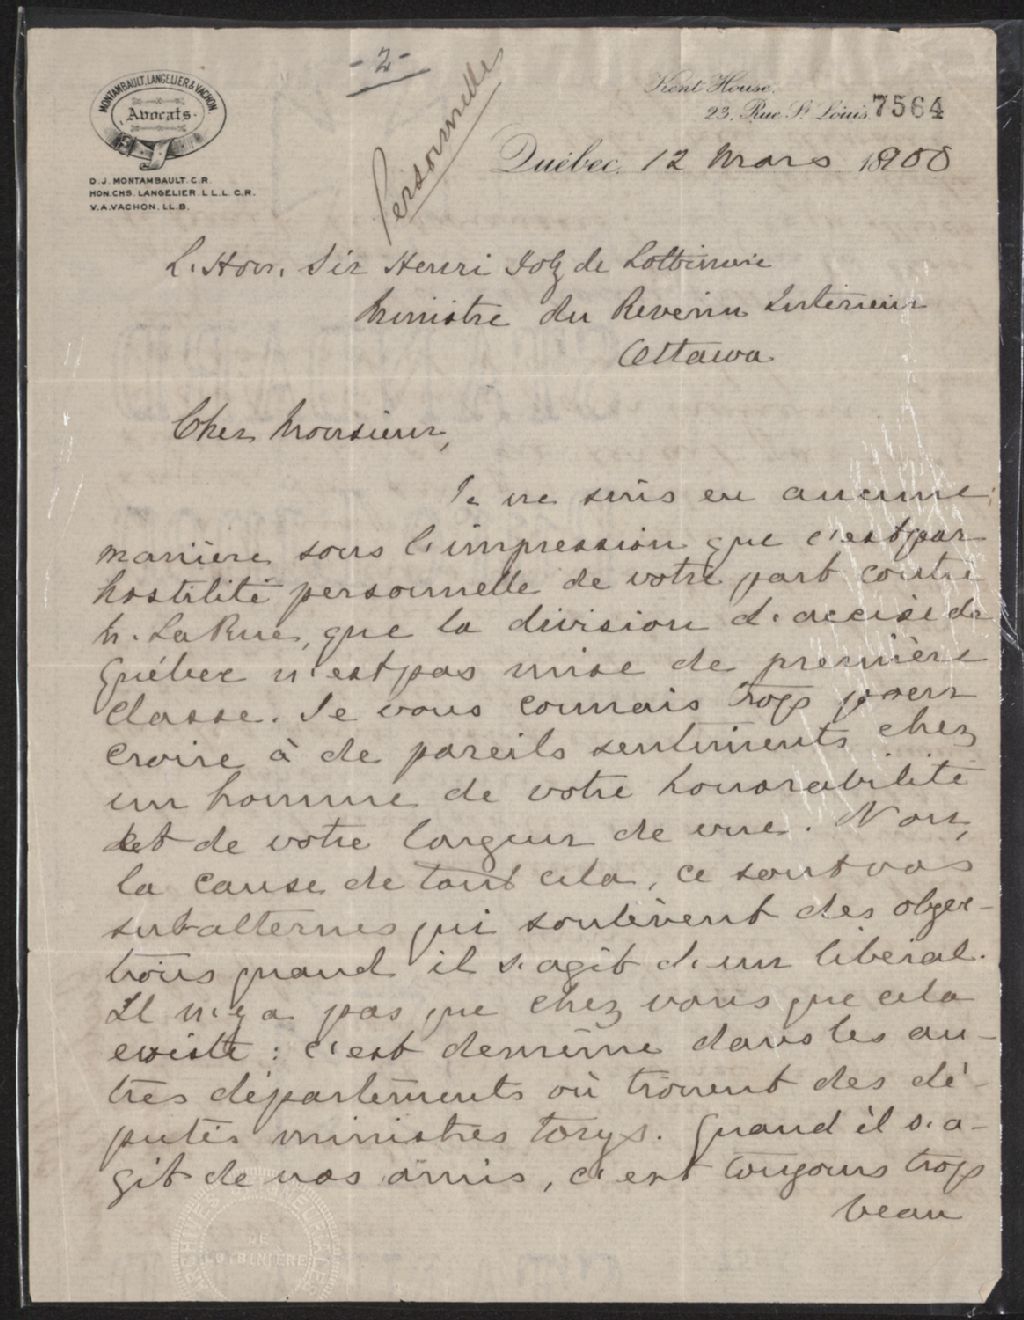 -2-
Personnelle
MONTAMBAULT, LANGELIER & VACHON
Avocats
D. J. MONTAMBAULT. C. R.
HON. CHS. LANGELIER. L.L.L. C.R.
V. A. VACHON. LL. B.
Kent House,
23, Rue St Louis 7564
Québec, 12 Mars 1900
L'Hon. Sir Henri Joly de Lotbinière
Ministre du Revenu Intérieur
Ottawa
Cher Monsieur,
Je ne suis en aucune
manière sous l'impression que c'est par
hostilité personnelle de votre part contre
M. LaRue, que la division d'accise de
Québec n'est pas mise de première
classe. Je vous connais trop pour
croire à de pareils sentiments chez
un homme de votre honorabilité
et de votre largeur de vue. Non,
la cause de tout cela, ce sont vos
subalternes qui soulèvent des objec-
tions quand il s'agit d'un libéral.
Il n'y a pas que chez vous que cela
existe : c'est de même dans les au-
tres départements où trouvent des dé-
putés ministres torys. Quand il s'a-
git de nos amis, c'est toujours trop
beau
ARCHIVES SEIGNEURIALES
DE
LOTBINIÈRE